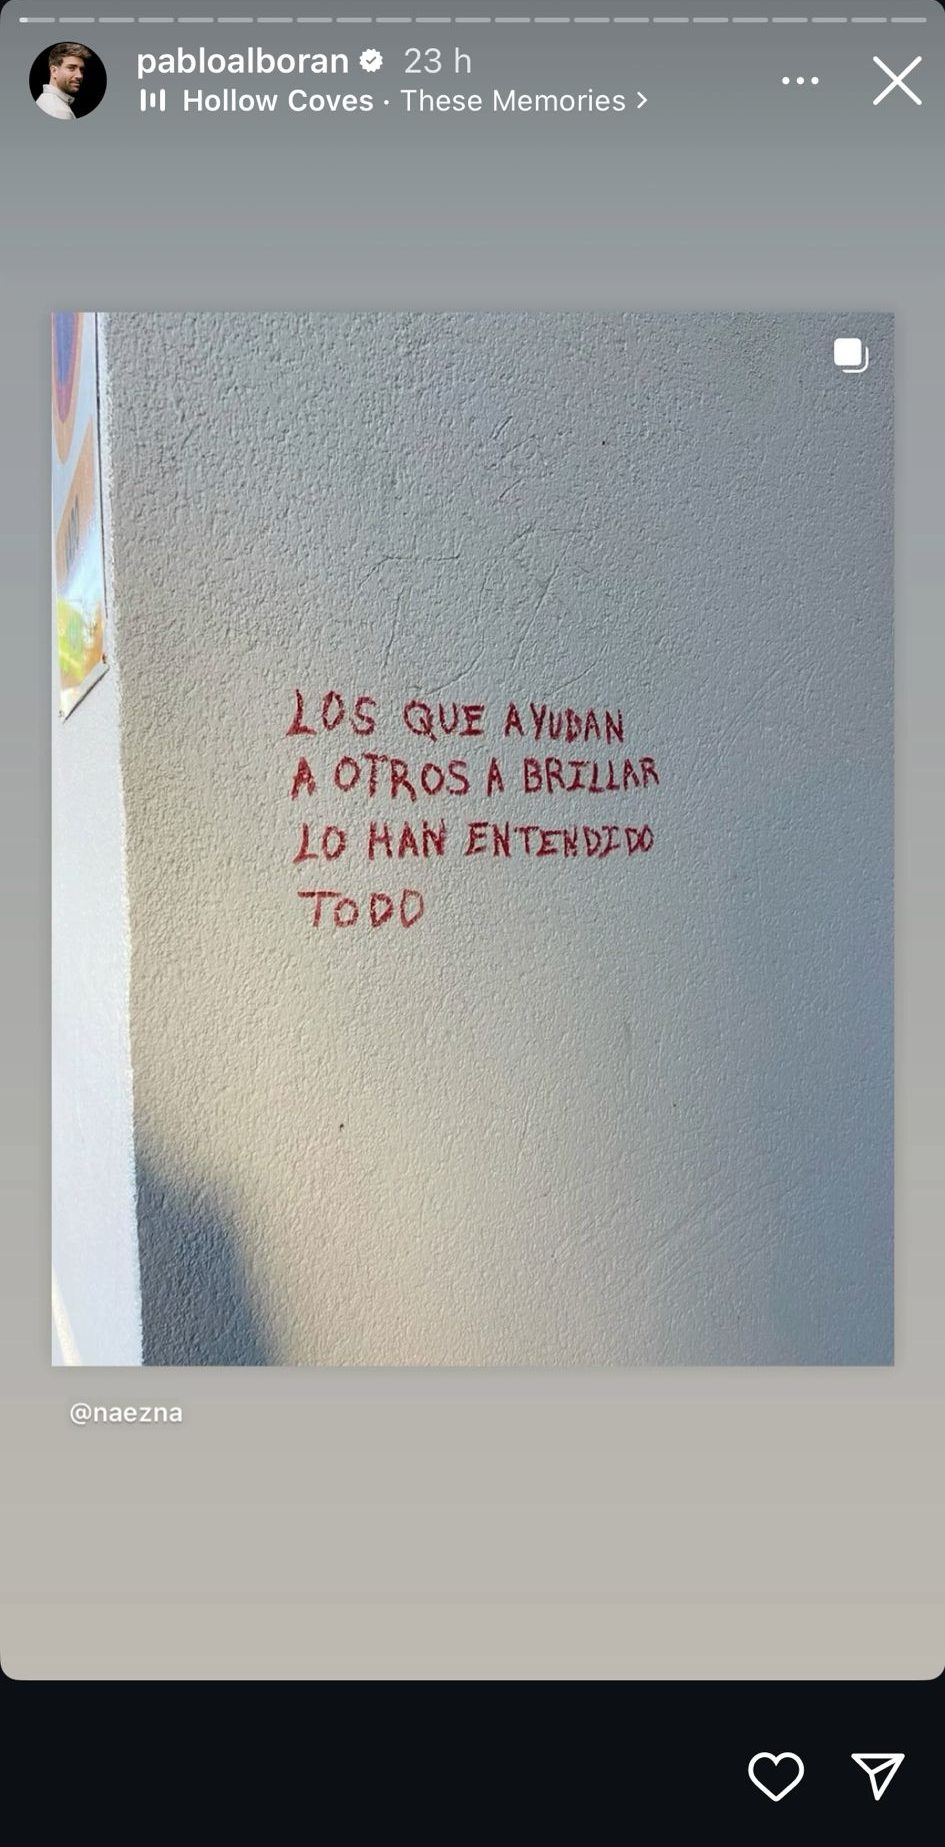 pabloalboran 23 h
Hollow Coves · These Memories >
LOS QUE AYUDAN
A OTROS A BRILLAR
LO HAN ENTENDIDO
TODO
@naezna